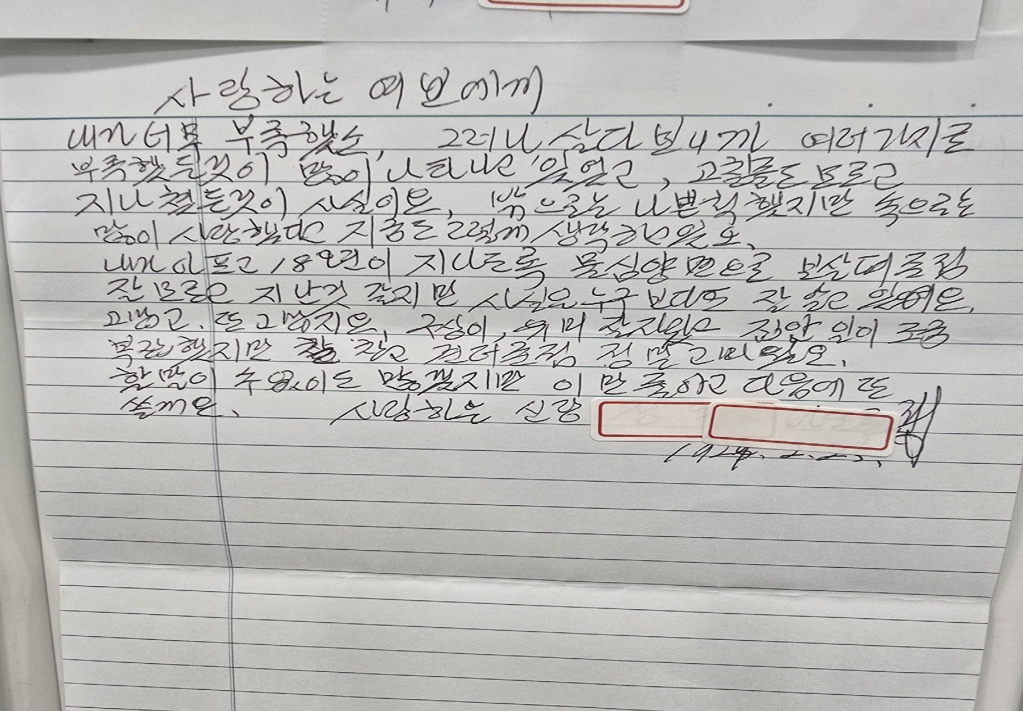 사랑하는 여보에께
내가 너무 부족했소, 그러나 살다보니까 여러가지로
부족했든것이 많이 나타나고 있었고, 고칠줄도 모르고
지나쳤든것이 사실이오, 밖으로는 나쁜척 했지만 속으로는
많이 사랑했다고 지금도 그렇게 생각하고 있오,
내가 아프고 18년이 지나도록 물심양면으로 보살펴준점
잘 모르고 지난것 같지만 사실은 누구보다도 잘 알고 있어요,
고맙고, 또 고맙지요, 집안 일이
했지만 참고 견뎌준점 정말 고마워요,
할말이 수없이도 많겠지만 이만 줄이고 다음에 또
쓸께요, 사랑하는 신랑
2.23.